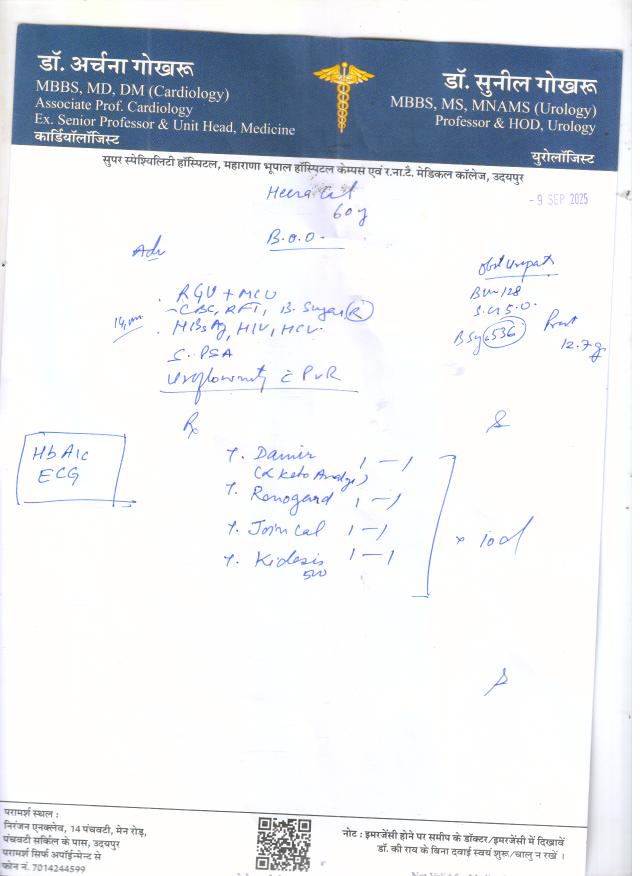 डॉ. अर्चना गोखरू
MBBS, MD, DM (Cardiology)
Associate Prof. Cardiology
Ex. Senior Professor & Unit Head, Medicine
कार्डियोलॉजिस्ट
डॉ. सुनील गोखरू
MBBS, MS, MNAMS (Urology)
Professor & HOD, Urology
युरोलॉजिस्ट
सुपर स्पेश्यिलिटी हॉस्पिटल, महाराणा भूपाल हॉस्पिटल केम्पस एवं र.ना.टै. मेडिकल कॉलेज, उदयपुर
- 9 SEP 2025
Heera Lal
60 y
B.O.O.
Adv
RGU + MCU
CBC, RFT, B. Sugar (R)
HBsAg, HIV, HCV
S. PSA
Uroflowmetry c̄ PVR
128
5.0
536
12.7 g
Rx
HbA1c
ECG
T. Damir 1 - 1
(α Keto Analge)
T. Renogard 1 - 1
T. Joincal 1 - 1
T. Kidesis 1 - 1
500
x 10 d
परामर्श स्थल :
निरंजन एनक्लेव, 14 पंचवटी, मेन रोड़,
पंचवटी सर्किल के पास, उदयपुर
परामर्श सिर्फ अपॉईन्मेन्ट से
फोन नं. 7014244599
नोट : इमरजेंसी होने पर समीप के डॉक्टर/इमरजेंसी में दिखावें
डॉ. की राय के बिना दवाई स्वयं शुरू/चालु न रखें ।